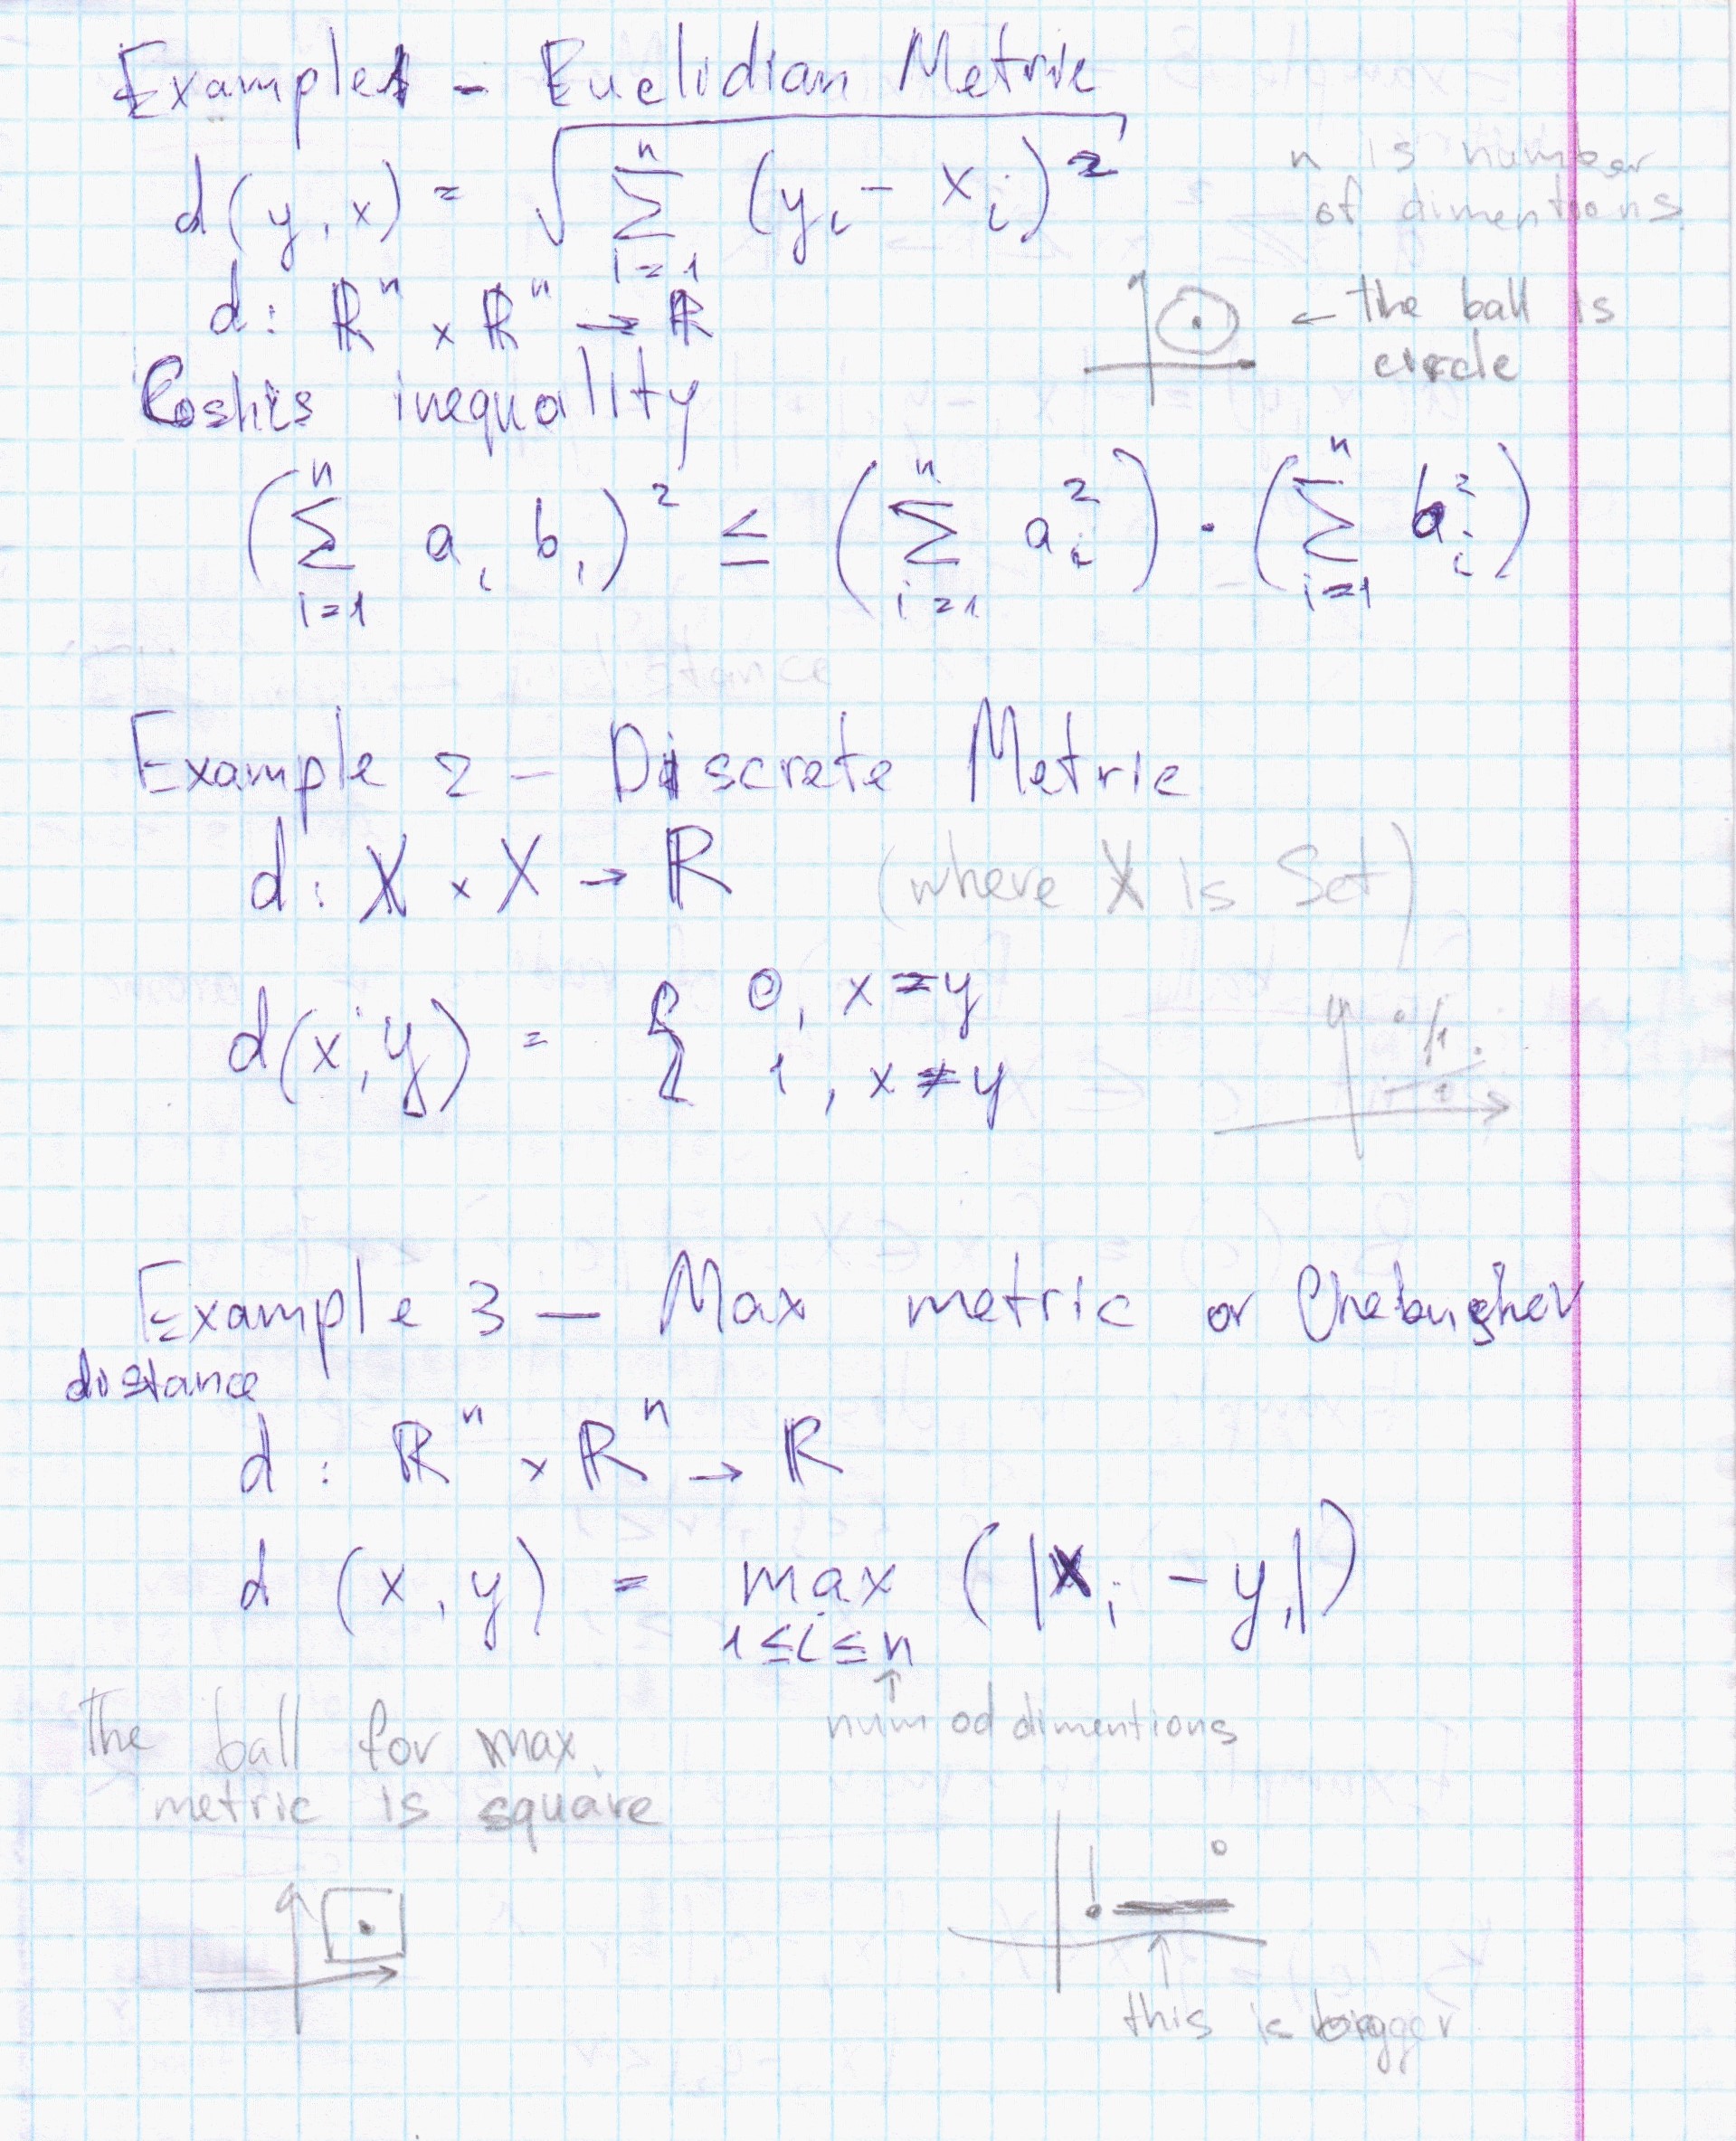 Example 1 - Euclidian Metric
d(y, x) = √ n ∑ i=1 (yi - xi)²
n is number
of dimentions
d: ℝⁿ × ℝⁿ → ℝ
← the ball is
circle
Coshis inequality
( n ∑ i=1 ai bi )² ≤ ( n ∑ i=1 ai² ) · ( n ∑ i=1 bi² )
Example 2 - Discrete Metric
d: X × X → ℝ (where X is Set)
d(x; y) = { 0, x = y
1, x ≠ y
1
1
Example 3 - Max metric or
distance
d : ℝⁿ × ℝⁿ → ℝ
d (x, y) = max (|xi - yi|)
1≤i≤n
↑
num od dimentions
The ball for max
metric is square
↑
this is bigger